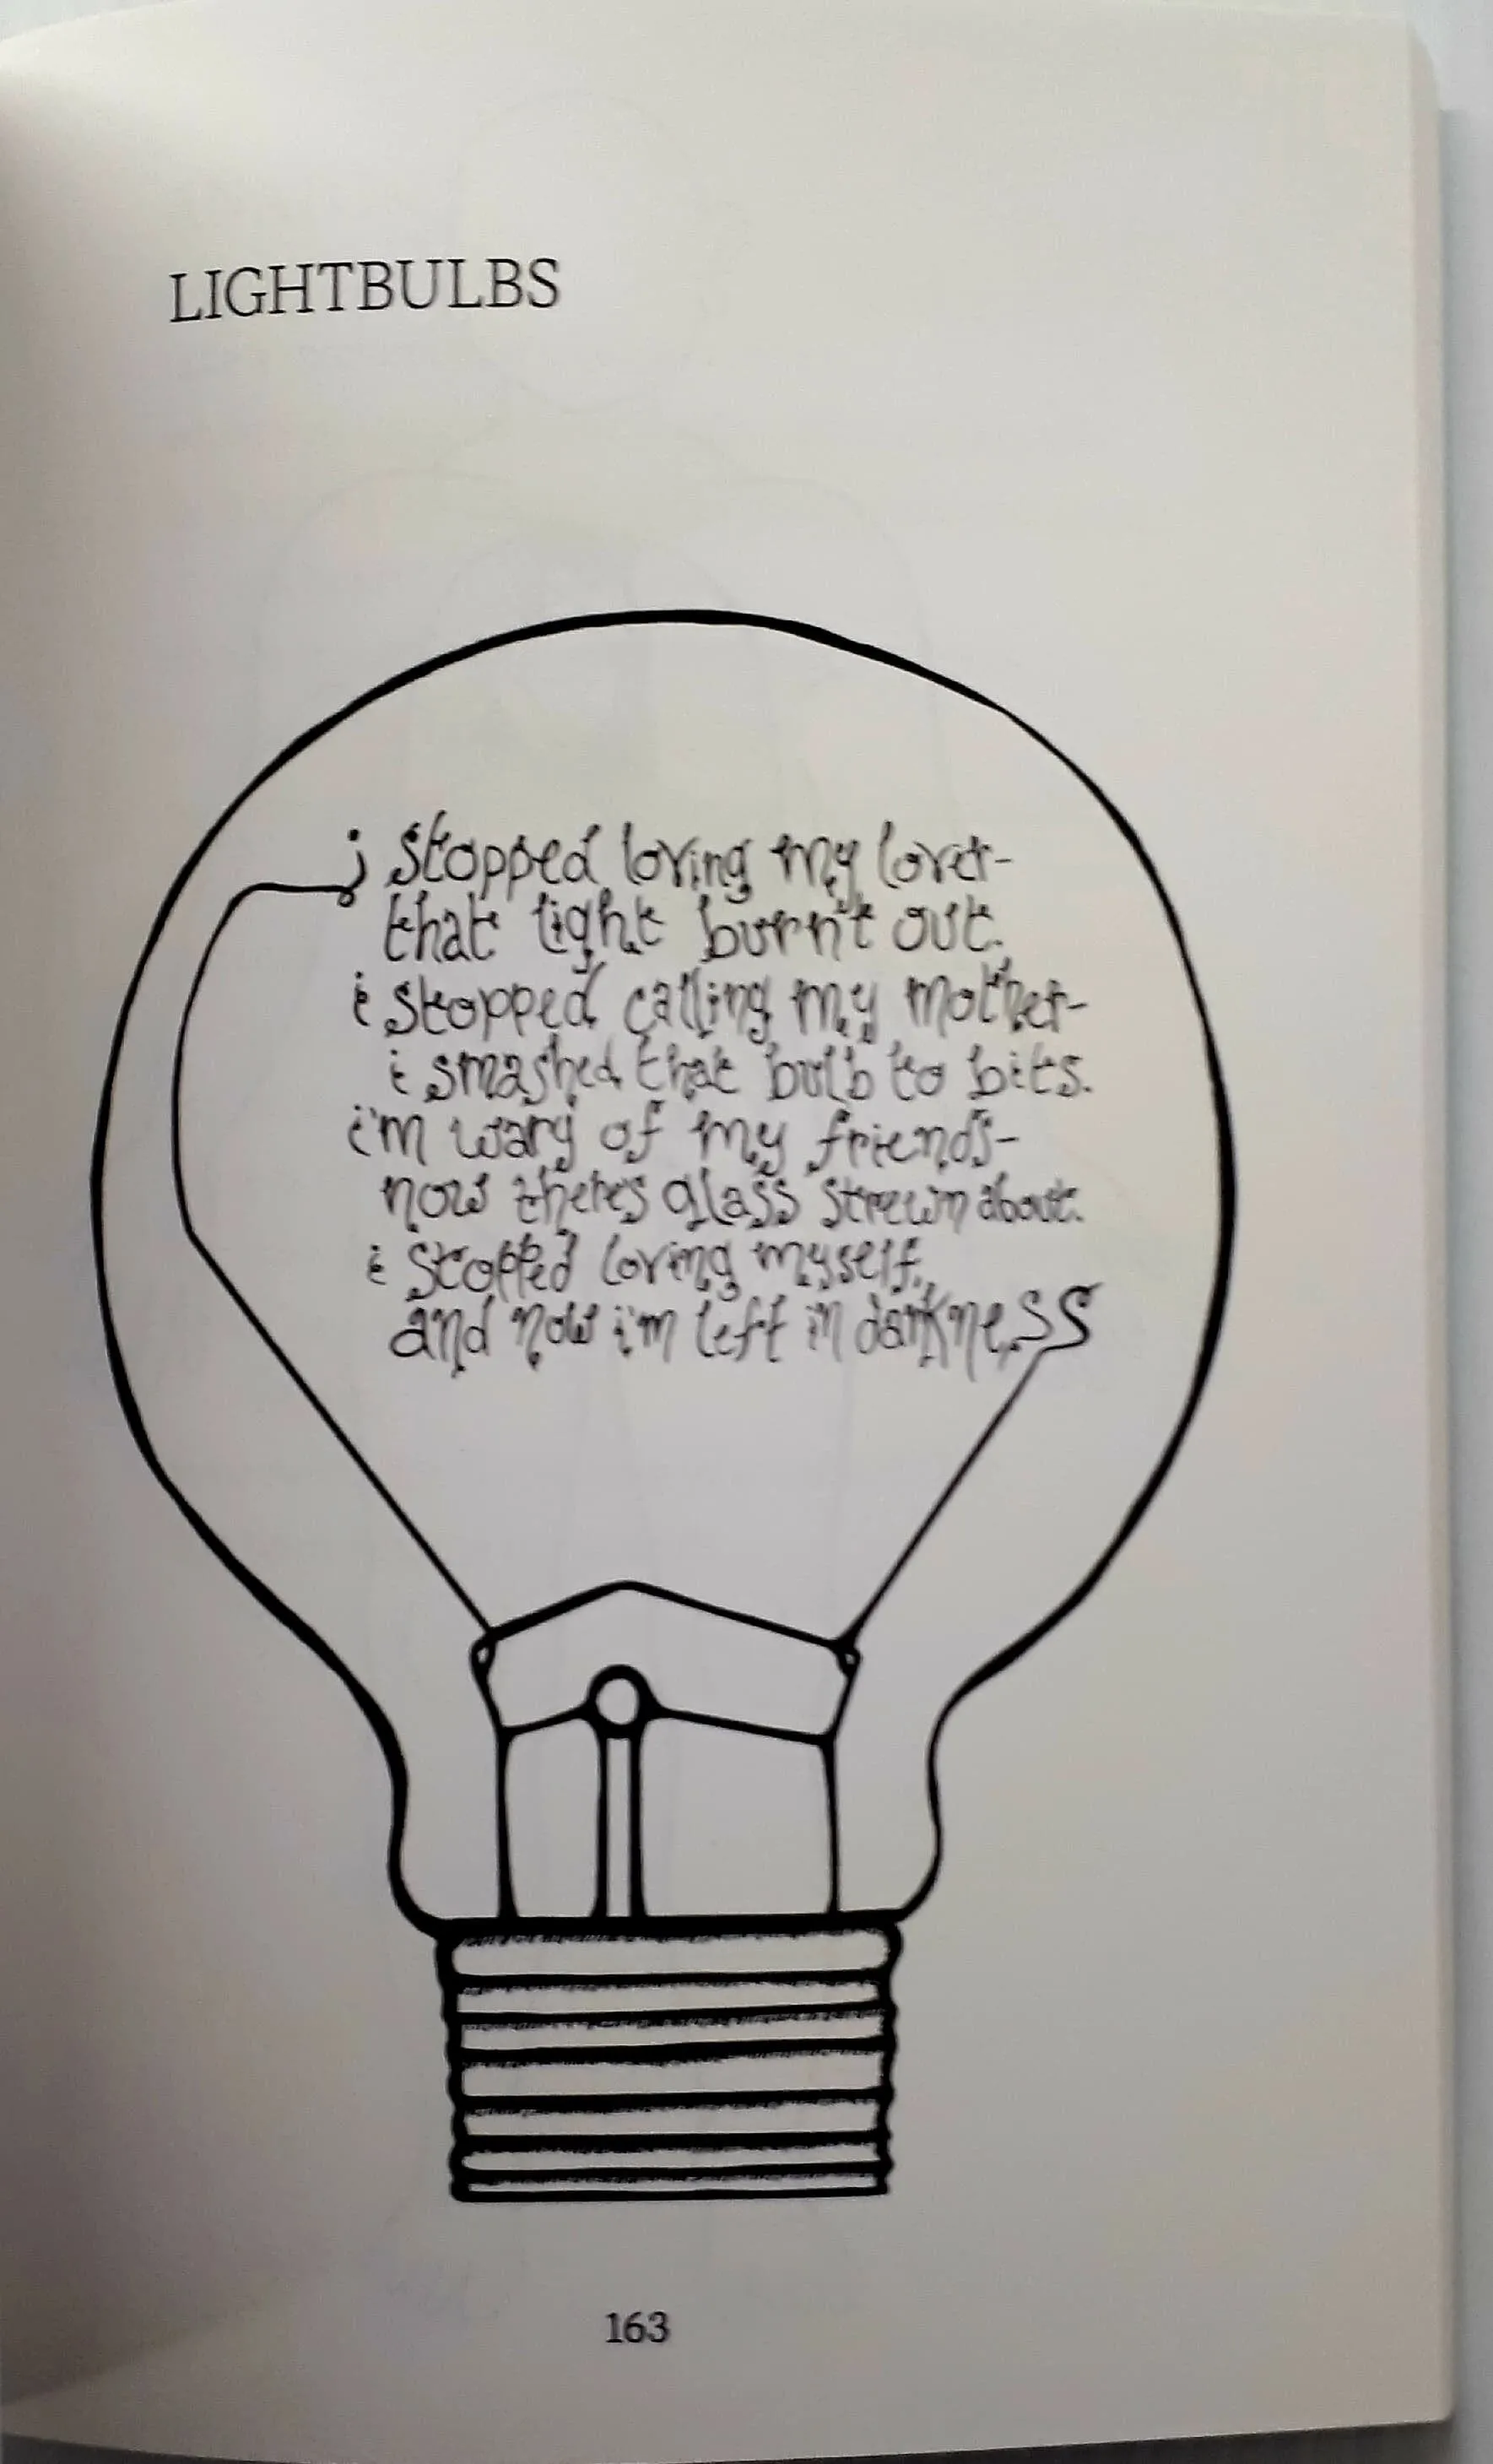 LIGHTBULBS
i stopped loving my lover-
that light burnt out.
i stopped calling my mother-
i smashed that bulb to bits.
i'm wary of my friends-
now there's glass strewn about.
i stopped loving myself,
and now i'm left in darkness
163